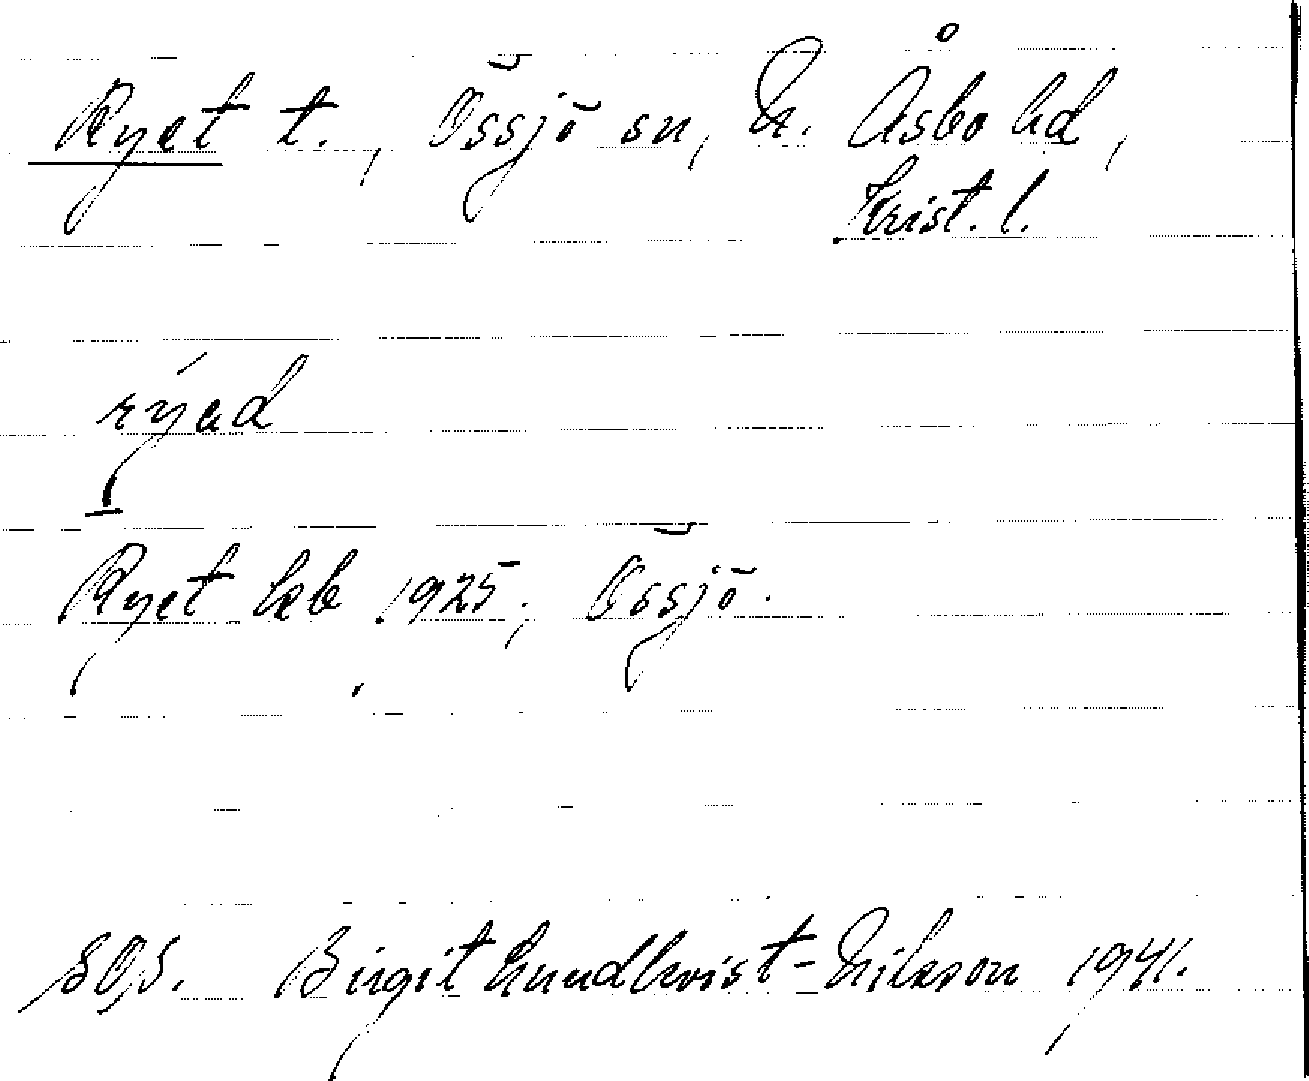 Ryet t., Össjö sn, N. Åsbo hd,
Krist. l.
rýad
Ryet ksb 1925, Össjö.
SOS. Birgit Lundkvist-Nilsson 1941.